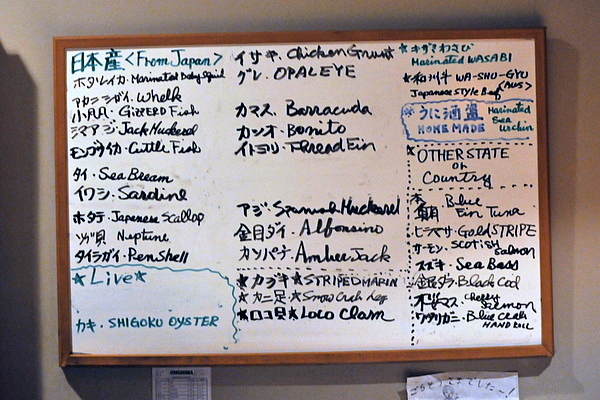 日本産<From Japan>
ホタルイカ・Marinated Baby Squid
アカニシガイ・Whelk
小肌・Gizzerd Fish
シマアジ・Jack Muckerel
モンゴウイカ・Cuttle Fish
タイ・Sea Bream
イワシ・Sardine
ホタテ・Japanese Scallop
ツブ貝 Neptune
タイラガイ・Pen Shell
★Live★
カキ・SHIGOKU OYSTER
イサキ・Chicken Grunt
グレ・OPALEYE
カマス・Barracuda
カツオ・Bonito
イトヨリ・Thread Fin
アジ・Spanish Muckerel
金目ダイ・Alfonsino
カンパチ・Amber Jack
★カジキ★STRIPED MARLIN
★カニ足★Snow Crab Leg
★ロコ貝★Loco Clam
★キザミわさび
Marinated WASABI
★和州牛 WA-SHU-GYU
Japanese Style Beef <AUS>
うに酒盗 Marinated
HOME MADE Sea
urchin
★OTHER STATE
or
Country
本 Blue
鮪・Fin Tuna
ヒラマサ・Gold STRIPE
サーモン・Scotish
Salmon
スズキ・Sea Bass
銀ダラ・Black Cod
Cherry
Salmon
ワタリガニ・Blue Crab
HAND ROLL
ごちそうさまでしたー!